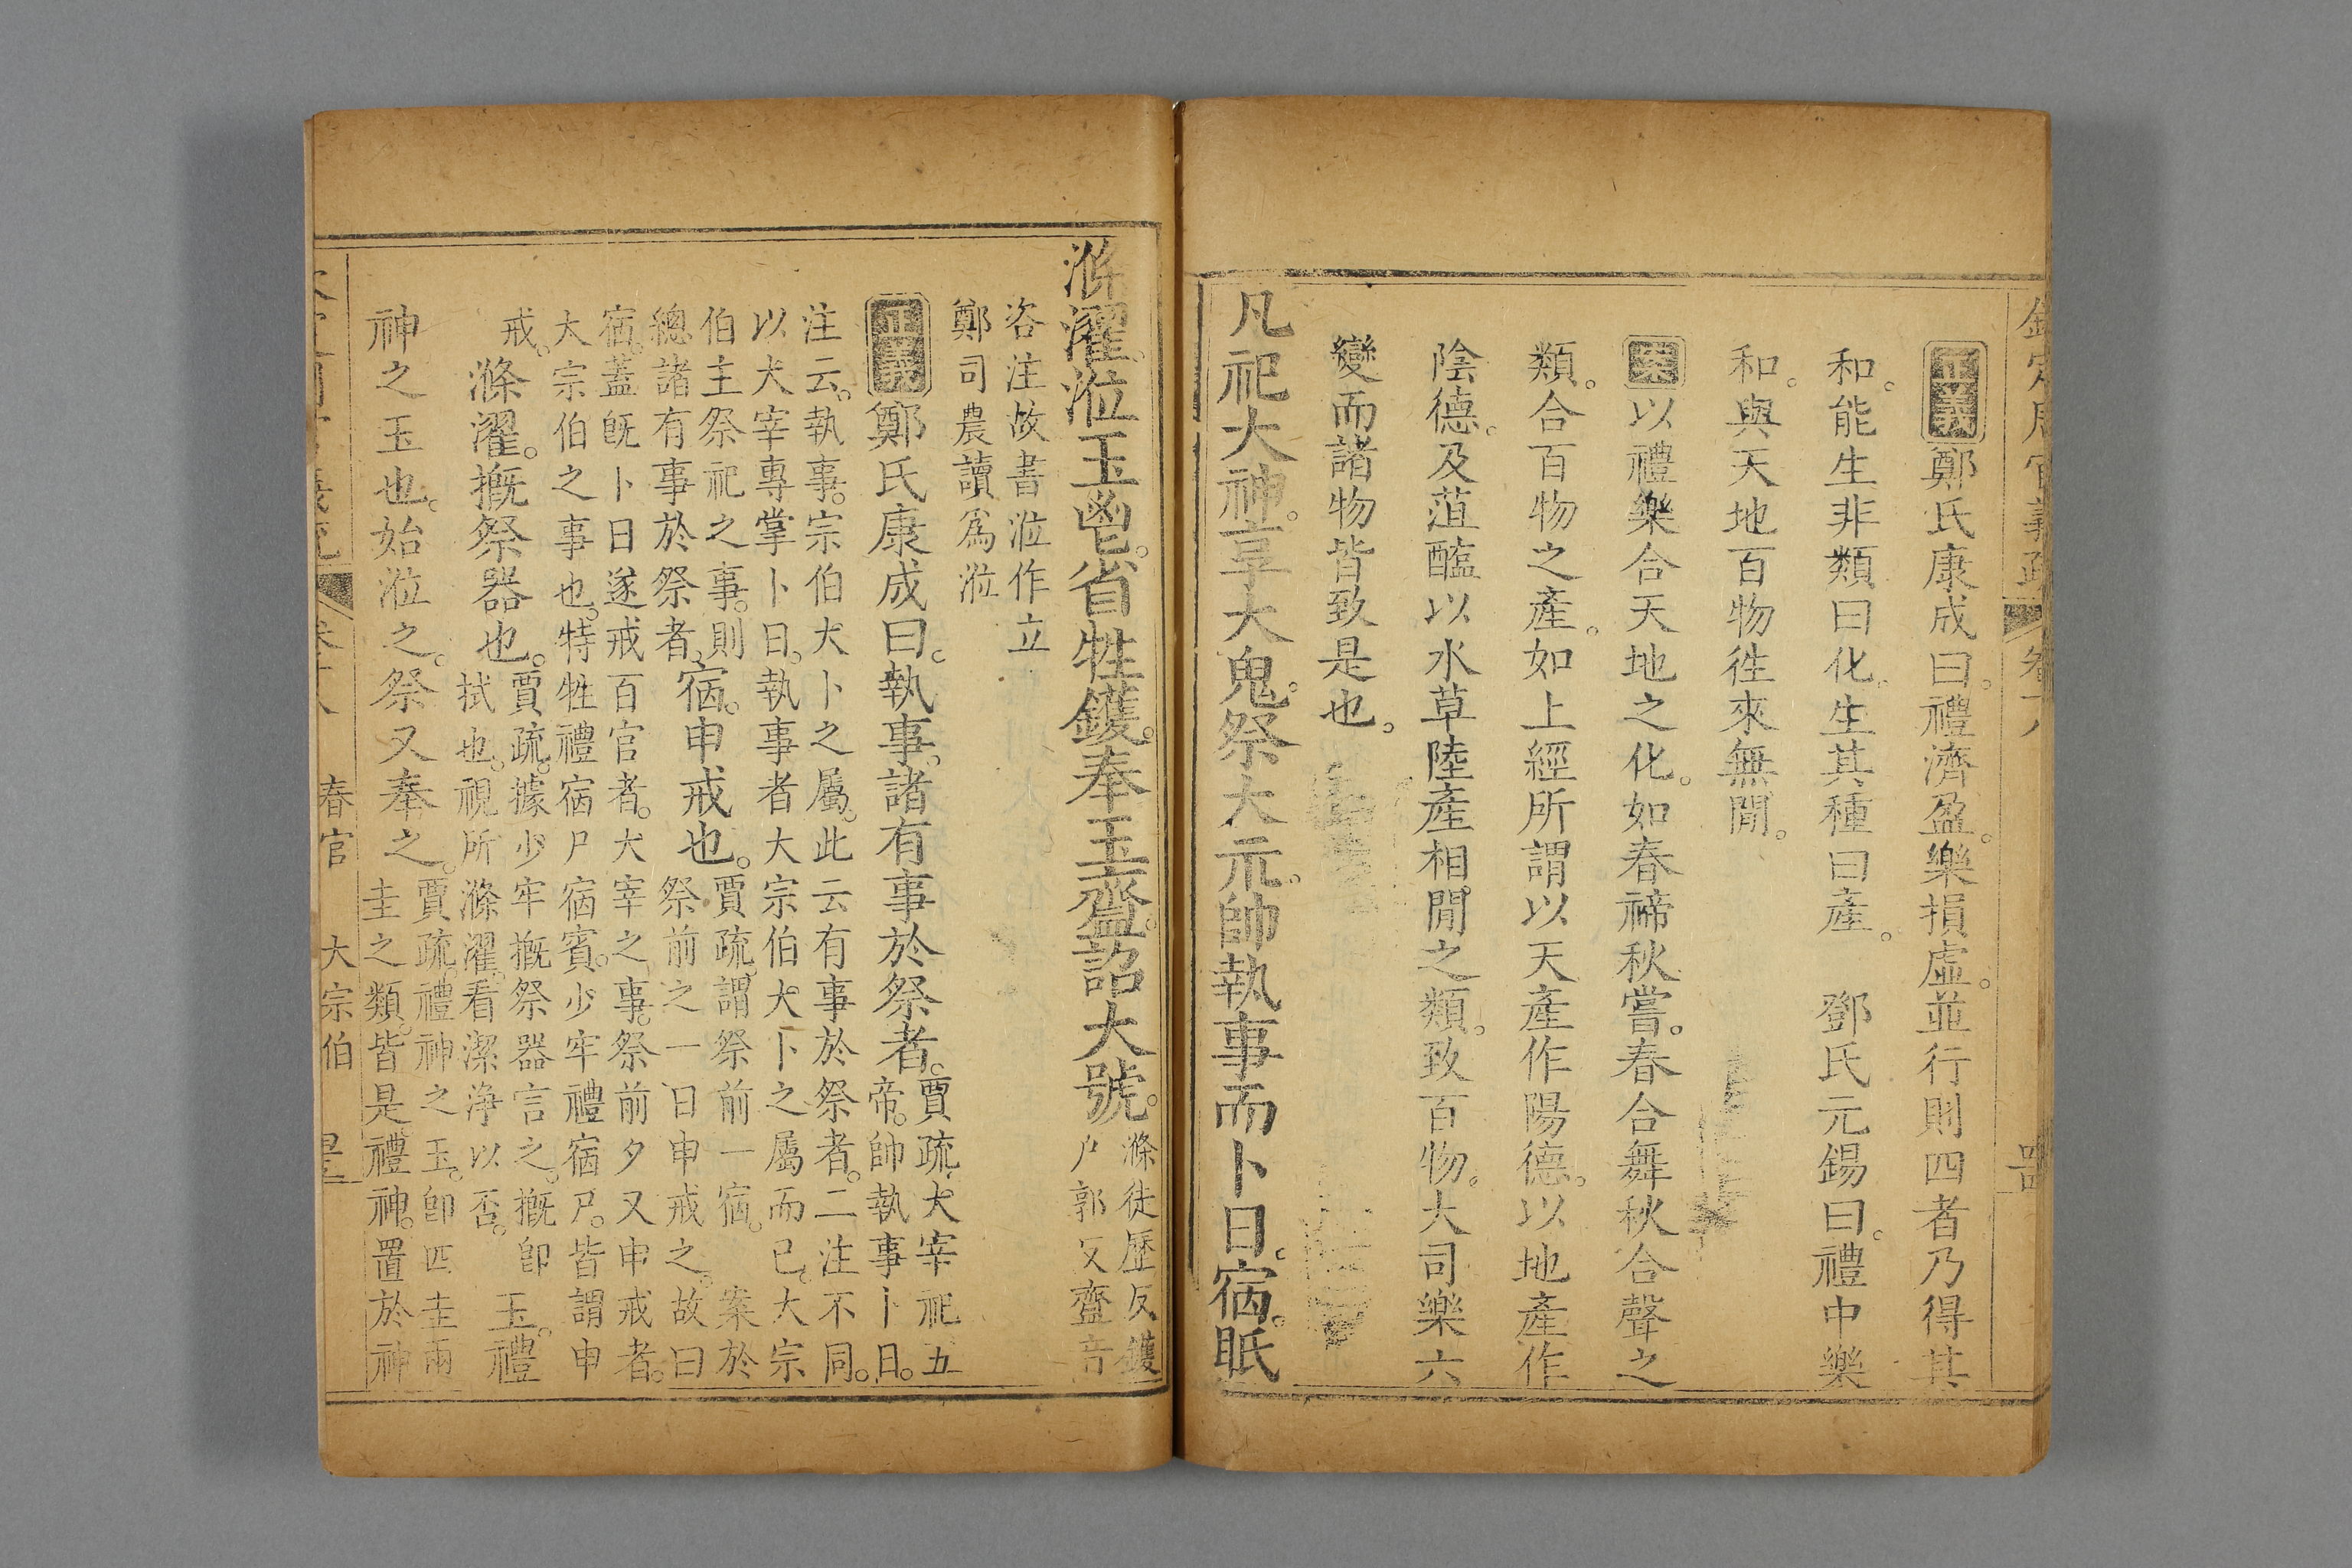 欽定周官義疏 卷十八
正義鄭氏康成曰。禮濟盈。樂損虛。並行則四者乃得其
和。能生非類曰化。生其種曰產。 鄧氏元錫曰。禮中樂
和。與天地百物徃來無閒。
案以禮樂合天地之化。如春禘秋嘗。春合舞秋合聲之
類。合百物之產。如上經所謂以天產作陽德。以地產作
陰德。及菹醢以水草陸產相閒之類。致百物。大司樂六
變而諸物皆致是也。
凡祀大神。享大鬼。祭大示。帥執事而卜日。宿。眡
滌濯。涖玉鬯。省牲鑊。奉玉齍。詔大號。
滌徒歷反鑊
户郭反齍音
咨注故書涖作立
鄭司農讀爲涖
正義鄭氏康成曰。執事。諸有事於祭者。
賈疏。大宰祀五
帝。帥執事卜日。
注云。執事。宗伯大卜之屬。此云有事於祭者。二注不同。
以大宰專掌卜日。執事者大宗伯大卜之屬而已。大宗
伯主祭祀之事。則
總諸有事於祭者。
宿。申戒也。
賈疏。謂祭前一宿。 案於
祭前之一日申戒之。故曰
宿。蓋旣卜日遂戒百官者。大宰之事。祭前夕又申戒者。
大宗伯之事也。特牲禮宿尸宿賓。少牢禮宿尸。皆謂申
戒。
滌濯。摡祭器也。
賈疏。據少牢摡祭器言之。摡卽
拭也。視所滌濯。看潔淨以否。
玉。禮
神之玉也。始涖之。祭又奉之。
賈疏。禮神之玉。卽四圭兩
圭之類。皆是禮神。置於神
卷十八 春官 大宗伯